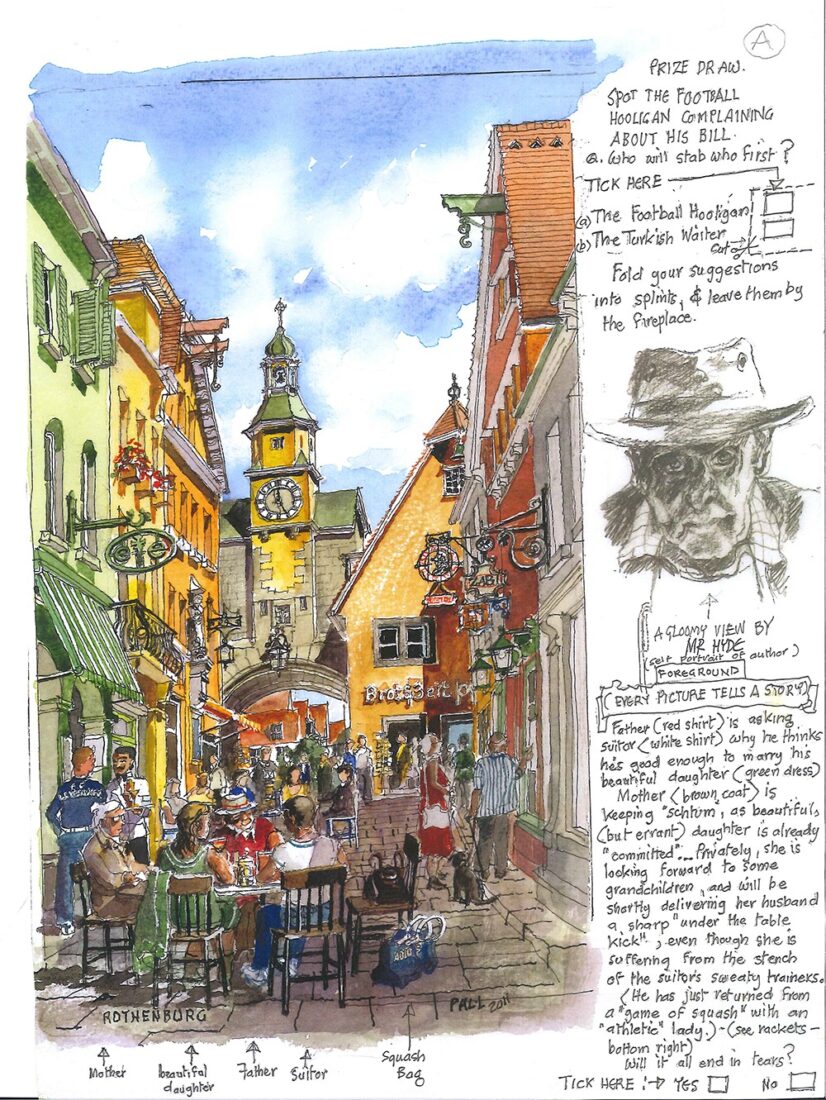 A
PRIZE DRAW.
SPOT THE FOOTBALL
HOOLIGAN COMPLAINING
ABOUT HIS BILL.
Q. Who will stab who first?
TICK HERE
(a) The Football Hooligan
(b) The Turkish Waiter
Cut
Fold your suggestions
into splints, & leave them by
the fireplace.
A GLOOMY VIEW BY
MR HYDE
(self portrait of author)
FOREGROUND
(EVERY PICTURE TELLS A STORY)
Father (red shirt) is asking
suitor (white shirt) why he thinks
he's good enough to marry his
beautiful daughter (green dress)
Mother (brown coat) is
keeping "schtum, as beautiful,
(but errant) daughter is already
"committed"... Privately, she is
looking forward to some
grandchildren, and will be
shortly delivering her husband
a sharp "under the table
kick", even though she is
suffering from the stench
of the suitor's sweaty trainers.
(He has just returned from
a "game of squash" with an
"athletic" lady.) - (see rackets -
bottom right)
Will it all end in tears?
TICK HERE :→ YES NO
ROTHENBURG
PALL 2011
Mother
beautiful
daughter
Father
Suitor
Squash
Bag